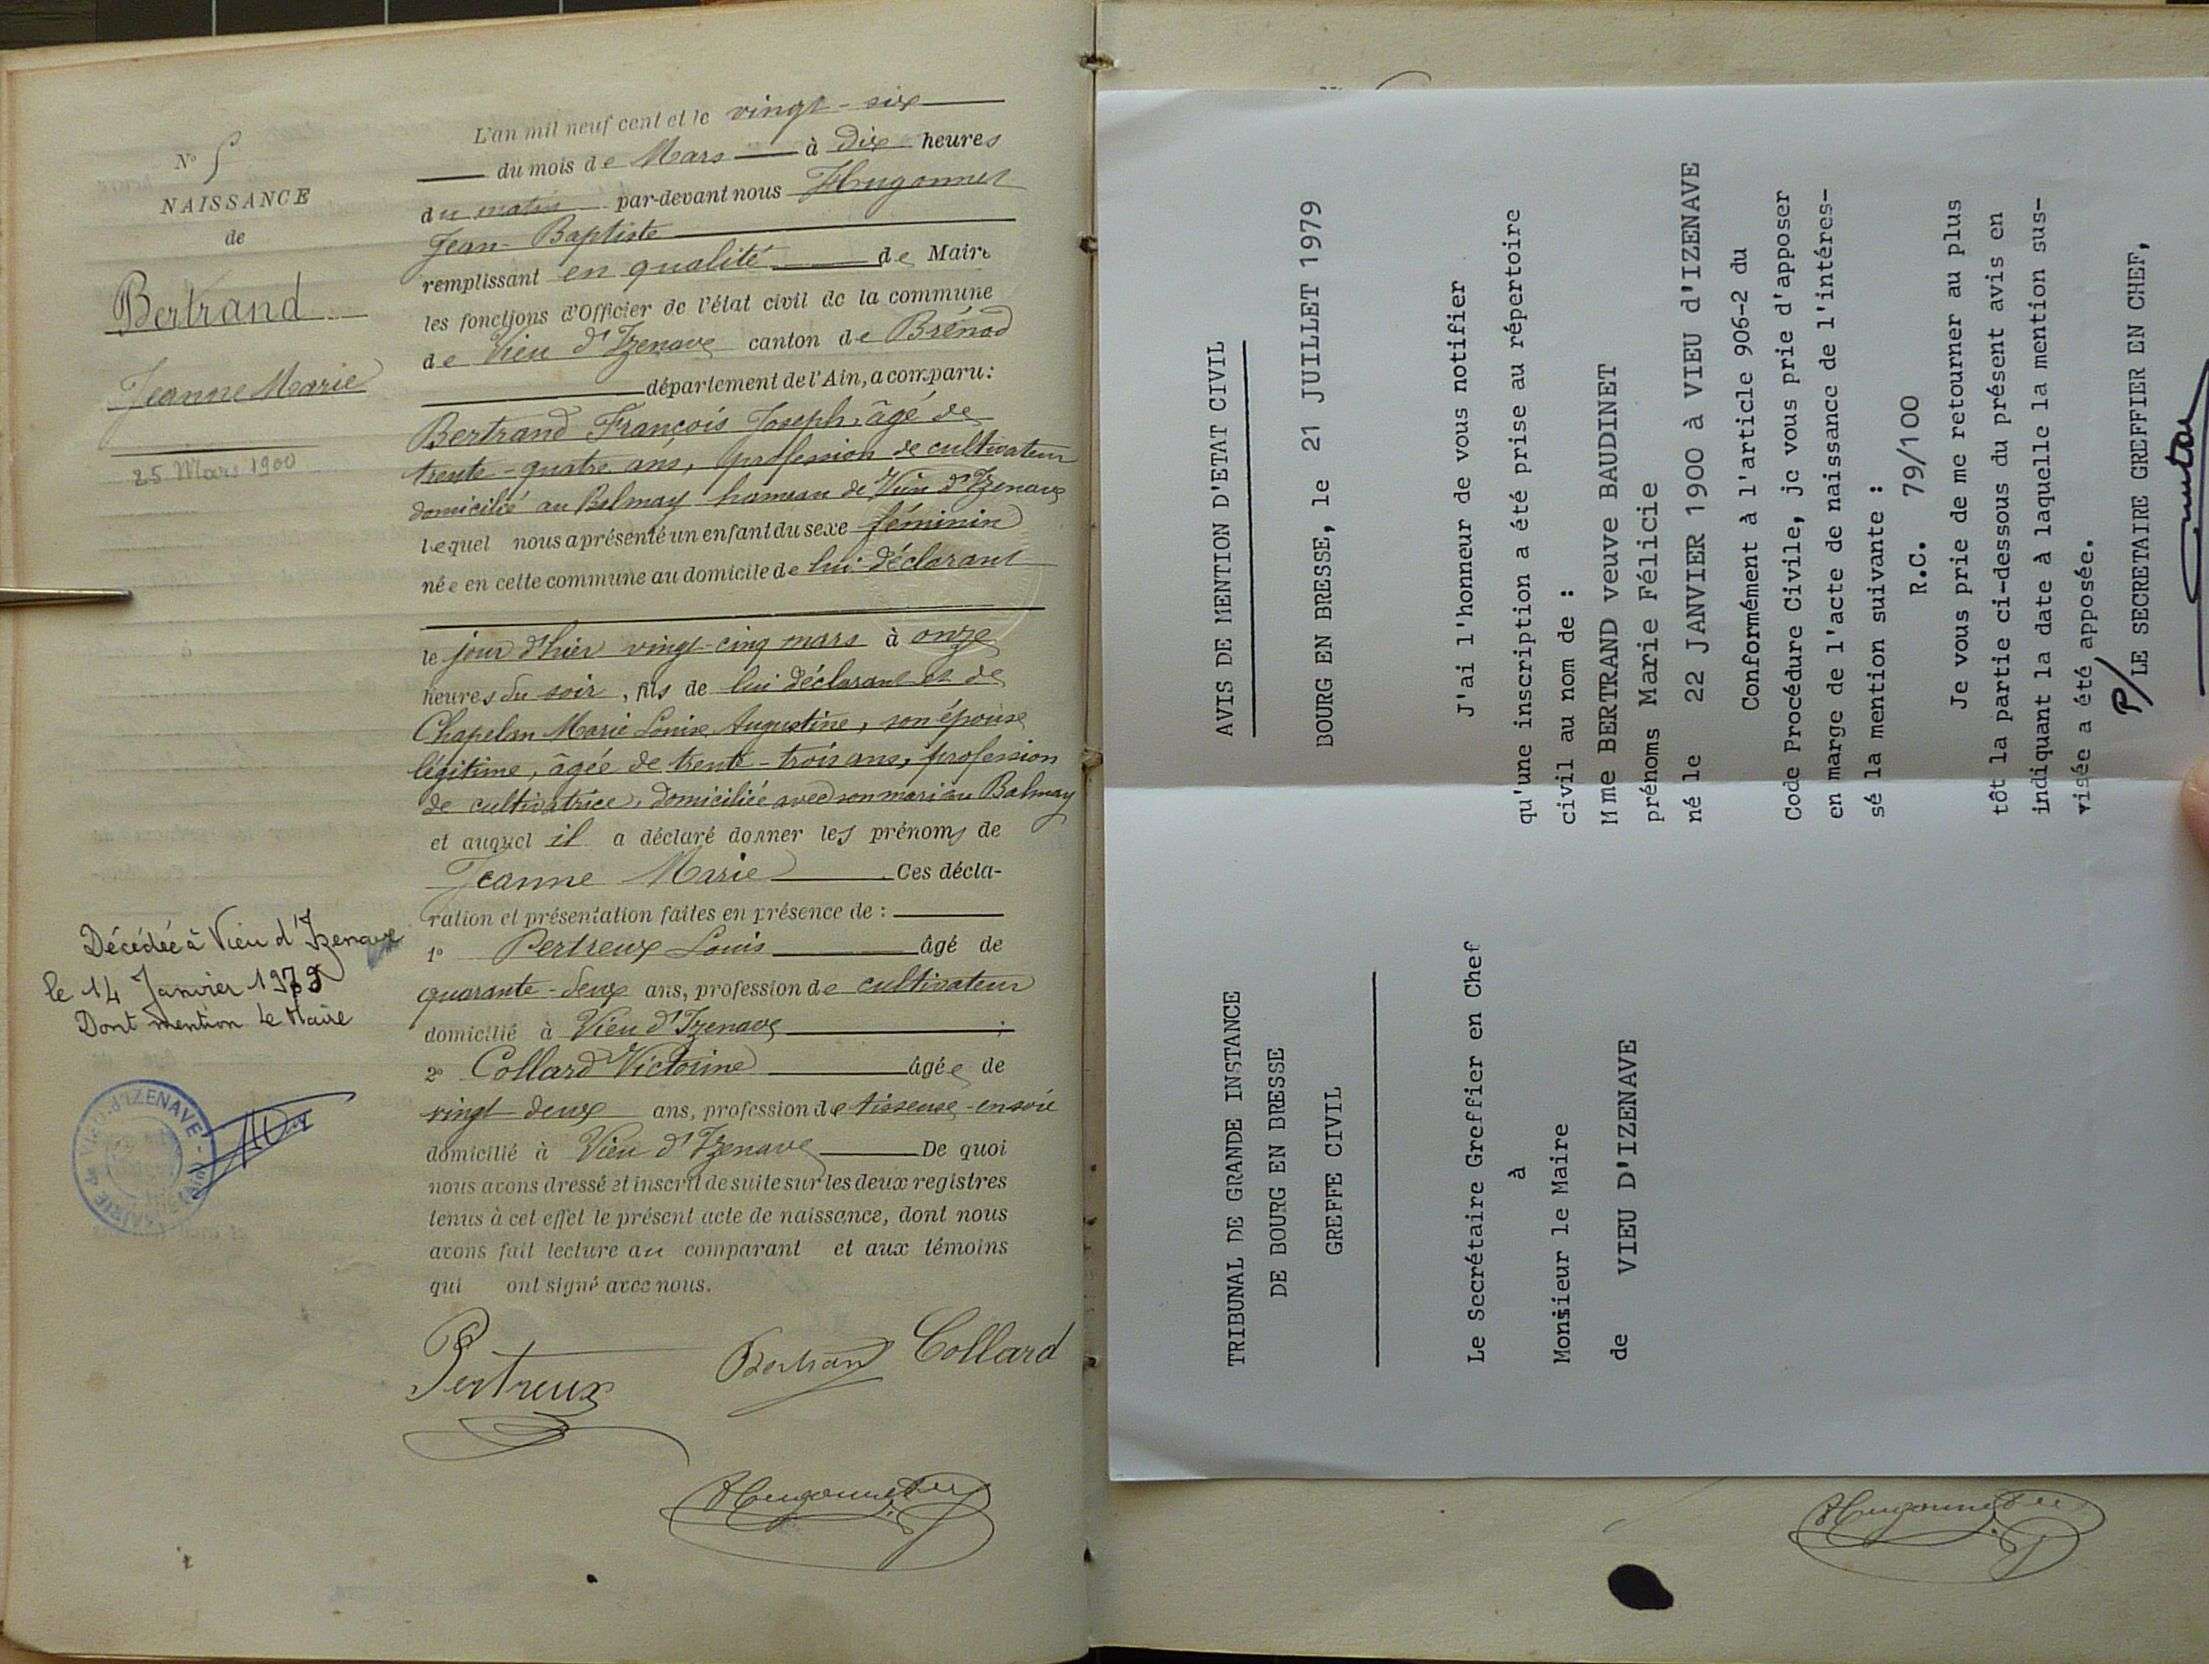 N° 5
NAISSANCE
de
Bertrand
Jeanne Marie
25 Mars 1900
Décédée à Vieu d'Izenave
le 14 Janvier 1979
Dont mention Le Maire
MAIRIE de VIEU-d'IZENAVE
L'an mil neuf cent et le vingt-six
du mois de Mars à dix heures
du matin par-devant nous Hugonnet
Jean-Baptiste
remplissant en qualité de Maire
les fonctions d'Officier de l'état civil de la commune
de Vieu d'Izenave canton de Brénod
département de l'Ain, a comparu:
Bertrand François Joseph, âgé de
trente-quatre ans, profession de cultivateur
domicilié au Balmay hameau de Vieu d'Izenave
lequel nous a présenté un enfant du sexe féminin
née en cette commune au domicile de lui déclarant
le jour d'hier vingt-cinq mars à onze
heures du soir, fils de lui déclarant et de
Chapelan Marie Louise Augustine, son épouse
légitime, âgée de trente-trois ans, profession
de cultivatrice, domiciliée avec son mari au Balmay
et auquel il a déclaré donner les prénoms de
Jeanne Marie Ces décla-
ration et présentation faites en présence de :
1° Pertreux Louis âgé de
quarante-deux ans, profession de cultivateur
domicilié à Vieu d'Izenave ;
2° Collard Victorine âgée de
vingt deux ans, profession de tisseuse en soie
domicilié à Vieu d'Izenave De quoi
nous avons dressé et inscrit de suite sur les deux registres
tenus à cet effet le présent acte de naissance, dont nous
avons fait lecture au comparant et aux témoins
qui ont signé avec nous.
Pertreux Bertrand Collard
Hugonnet
TRIBUNAL DE GRANDE INSTANCE
DE BOURG EN BRESSE
GREFFE CIVIL
Le Secrétaire Greffier en Chef
à
Monsieur le Maire
de VIEU D'IZENAVE
AVIS DE MENTION D'ETAT CIVIL
BOURG EN BRESSE, le 21 JUILLET 1979
J'ai l'honneur de vous notifier
qu'une inscription a été prise au répertoire
civil au nom de :
Mme BERTRAND veuve BAUDINET
prénoms Marie Félicie
né le 22 JANVIER 1900 à VIEU d'IZENAVE
Conformément à l'article 906-2 du
Code Procédure Civile, je vous prie d'apposer
en marge de l'acte de naissance de l'intéres-
sé la mention suivante :
R.C. 79/100
Je vous prie de me retourner au plus
tôt la partie ci-dessous du présent avis en
indiquant la date à laquelle la mention sus-
visée a été apposée.
P/ LE SECRETAIRE GREFFIER EN CHEF,
Hugonnet